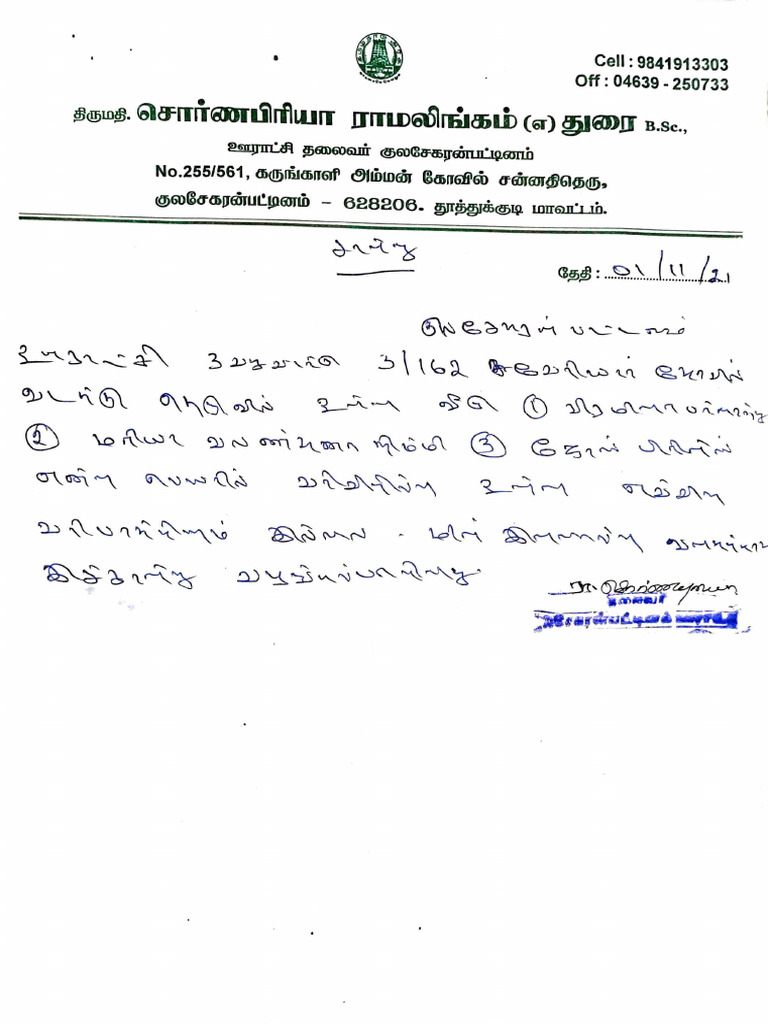 Cell : 9841913303
Off : 04639 - 250733
திருமதி. சொர்ணபிரியா ராமலிங்கம் (எ) துரை B.Sc.,
ஊராட்சி தலைவர் குலசேகரன்பட்டினம்
No.255/561, கருங்காளி அம்மன் கோவில் சன்னதிதெரு,
குலசேகரன்பட்டினம் - 628206. தூத்துக்குடி மாவட்டம்.
சான்று
தேதி : 01/11/21
குலசேகரன் பட்டணம்
ஊராட்சி 3வது வார்டு 3/162 சவேரியார் கோவில்
வடக்கு தெருவில் உள்ள வீடு ①
② மரியா ③
என்ற பெயரில் வரிவிதிப்பு உள்ள எவ்வித
வரிபாக்கியும் இல்லை - மின் இணைப்பு
இச்சான்று வழங்கப்படுகிறது
தலைவர்